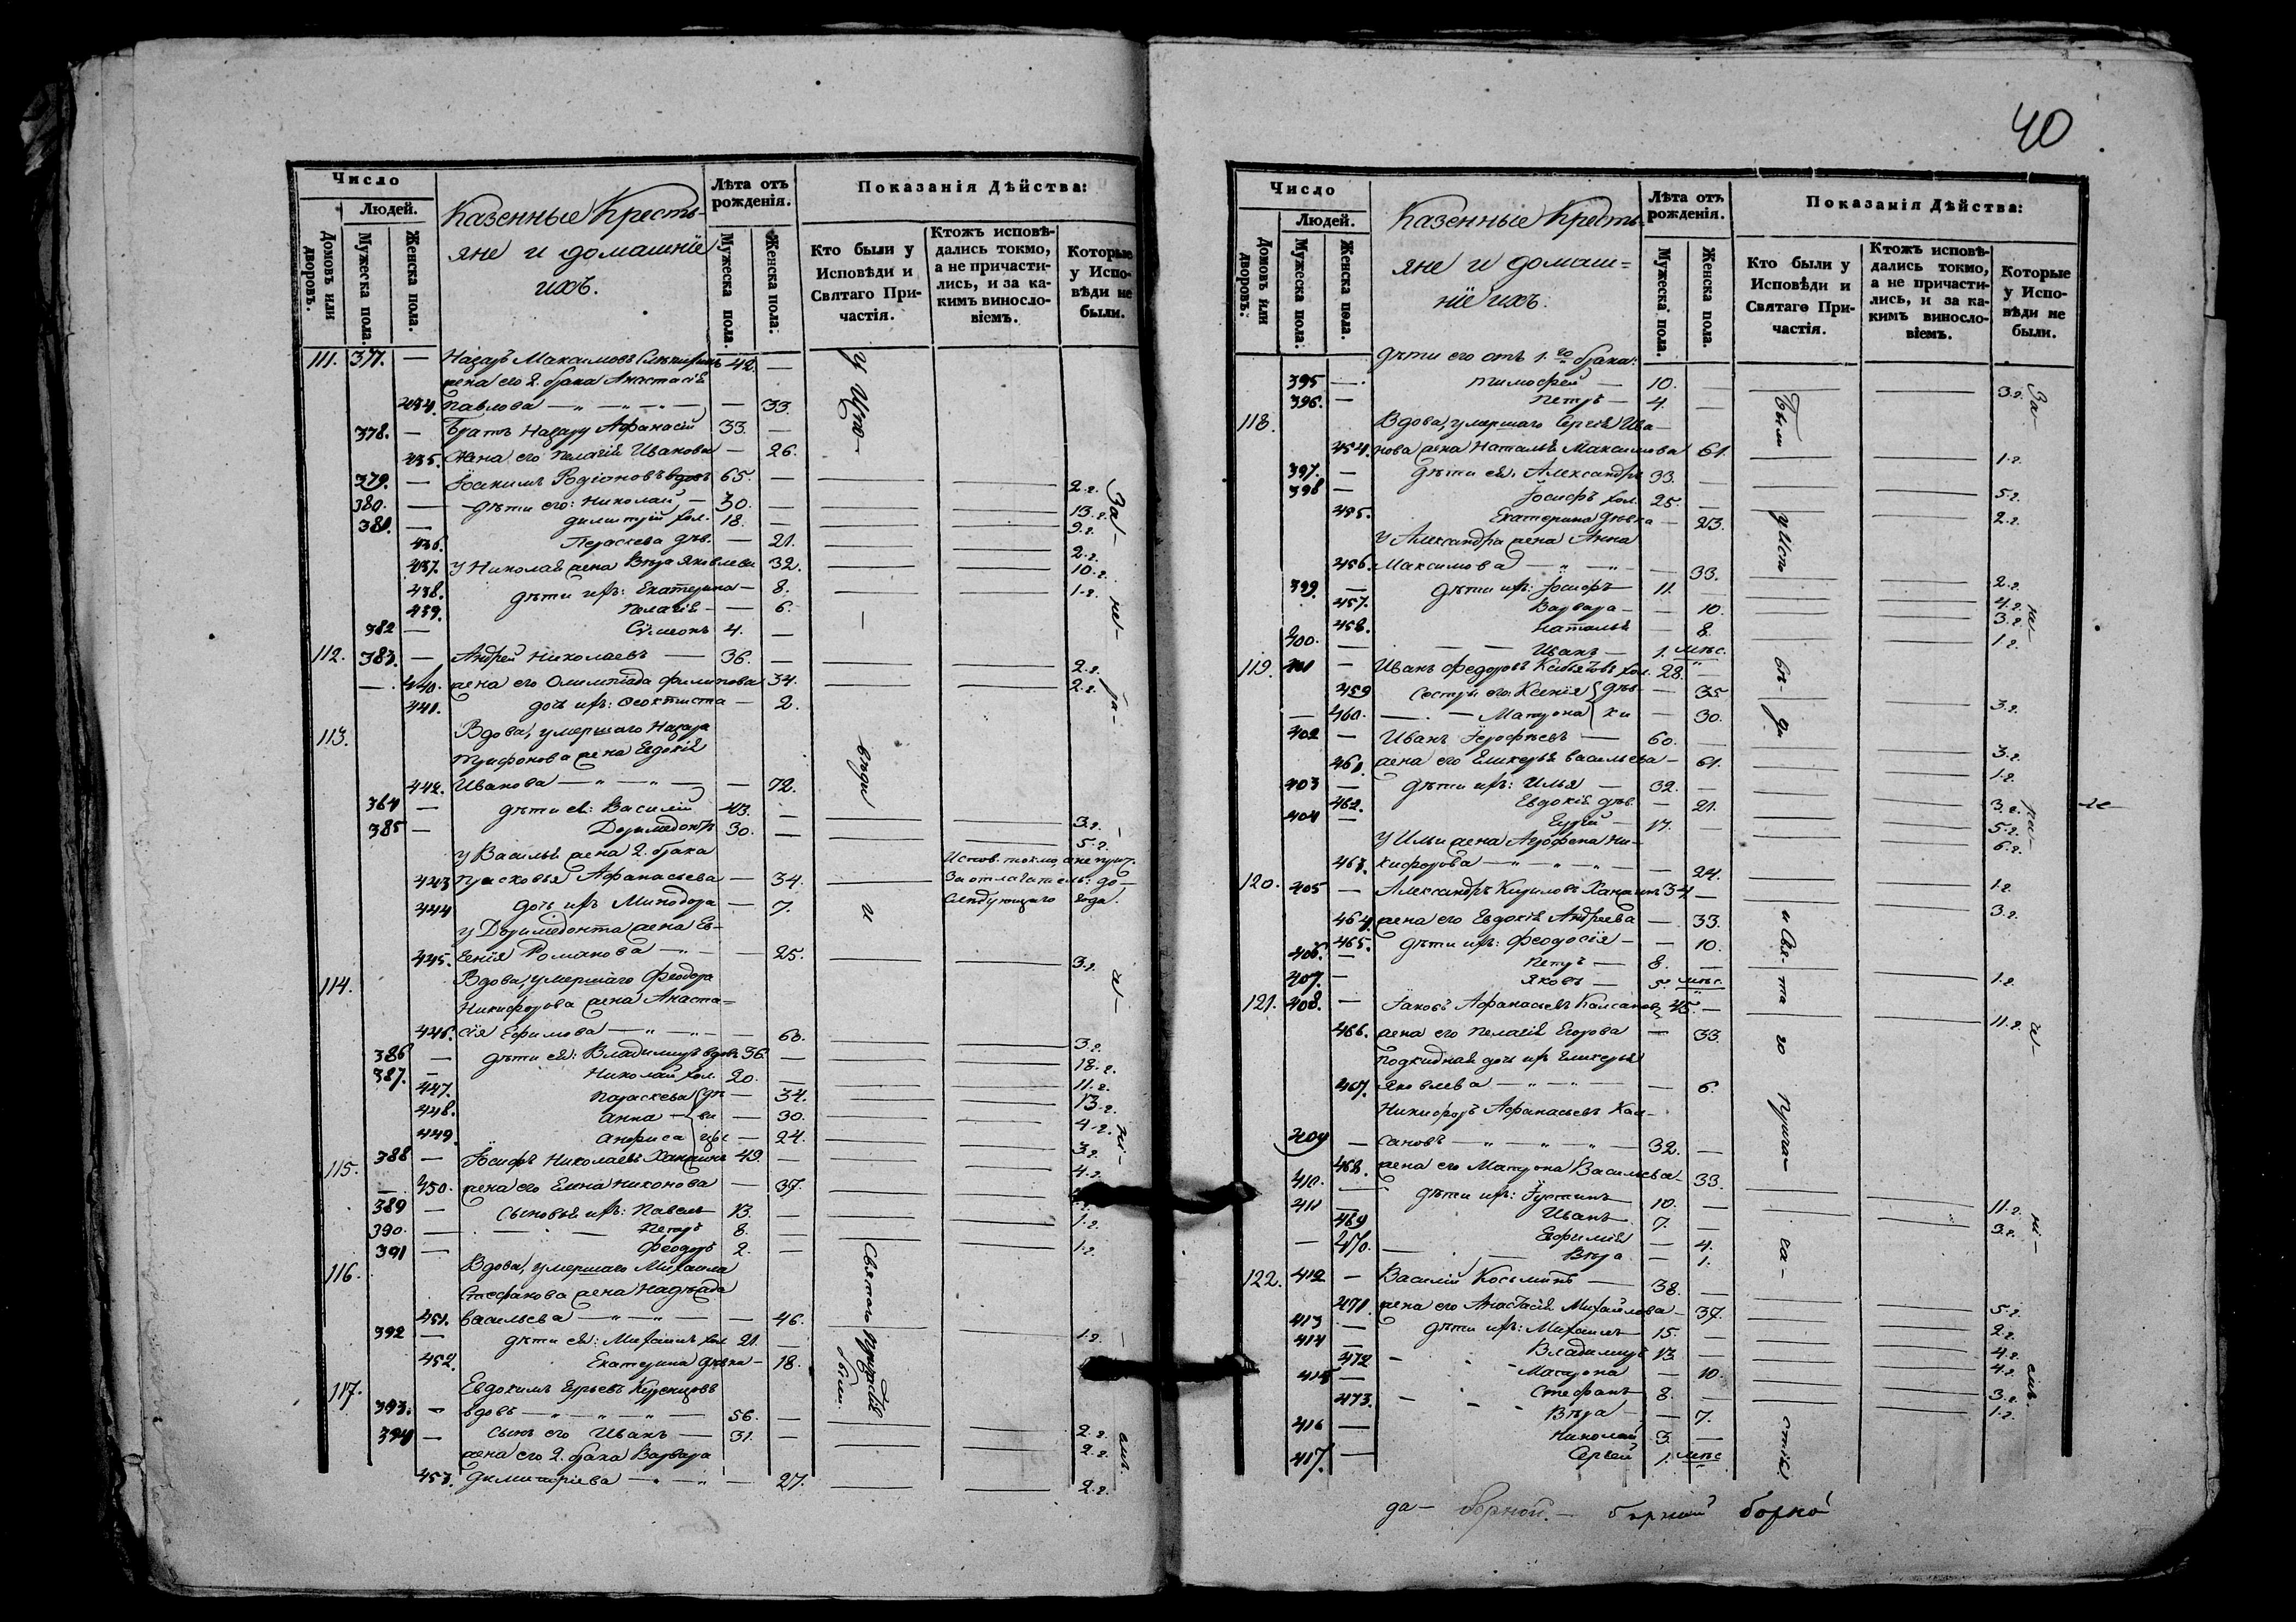 Число
Людей.
Домовъ или дворовъ.
Мужеска пола.
Женска пола.
Казенные Кресть-
яне и домашніе
ихъ.
Лѣта отъ рожденія.
Мужеска пола.
Женска пола.
Показанія Дѣйства:
Кто были у Исповѣди и Святаго Причастія.
Ктожъ исповѣдались токмо, а не причастились, и за какимъ винословіемъ.
Которые у Исповѣди не были.
111. 377. — Назаръ Максимовъ 42. —
жена его 2. брака Анастасія
434. Павлова — 33.
378. — Братъ Назару Афанасій 33. —
435. Жена его Пелагія Иванова — 26.
379. — Іоакимъ Родіоновъ вдовъ 65. — 2.г.
380. — дѣти его: Николай — 30. — 13.г.
381. — Димитрій хол. 18. — 9.г.
436. Параскева дѣв. — 21. 2.г.
437. у Николая жена Вѣра Яковлева 32. 10.г.
438. дѣти ихъ: Екатерина — 8. 1.г.
439. Пелагія — 6.
382 — Сѵмеонъ 4. —
112. 383. — Андрей Николаевъ — 36. — 2.г.
— 440. жена его Олимпіада Филипова 34. 2.г.
441. дочь ихъ: Феоктиста — 2.
113. Вдова, умершаго Назара
Трифонова жена Евдокія
442. Иванова — — 72.
384 — дѣти ея: Василій 43. — 3.г.
385 — Доримедонтъ 30. — 5.г.
у Василья жена 2. брака
Испов. токмо, а не прич.
443 Прасковья Афанасьева — 34. За отлагатель: до
444 дочь ихъ Минодора — 7. Слѣдующаго года.
у Доримедонта жена Ев-
445. генія Романова — — 25. 3.г.
114. Вдова, умершаго Феодора
Никифорова жена Анаста=
446. сія Ефимова — — 60. 3.г.
386 — дѣти ея: Владимиръ вдовъ 36. — 18.г.
387. — Николай хол. 20. — 11.г.
447. Параскева дѣ — 34. 13.г.
448. Анна — ви — 30. 4.г.
449. Анфиса цы — 24. 3.г.
115. 388 — Іосифъ Николаевъ 49. — 4.г.
— 450. жена его Елена Никонова — 37.
389 — Сыновья ихъ: Павелъ 13. — 1.г.
390. — Петръ 8. — 1.г.
391 — Феодоръ 2. —
116. Вдова, умершаго Михаила
Стефанова жена Надежда
451. Васильева — — 46.
392 — дѣти ея: Михаилъ хол 21. — 1.г.
452. Екатерина дѣвка — 18.
117. Евдокимъ Гурьевъ
393. — вдовъ — 56. — 2.г.
394 — Сынъ его Иванъ — 31. — 2.г.
жена его 2. брака Варвара
453. Димитріева — — 27. 2.г.
У Испо-
вѣди
и
Святаго Причастія
были.
За- не- ра- — и- ні- — емъ.
40
Число
Людей.
Домовъ или дворовъ.
Мужеска пола.
Женска пола.
Казенные Кресть-
яне и домаш=
ніе ихъ.
Лѣта отъ рожденія.
Мужеска пола.
Женска пола.
Показанія Дѣйства:
Кто были у Исповѣди и Святаго Причастія.
Ктожъ исповѣдались токмо, а не причастились, и за какимъ винословіемъ.
Которые у Исповѣди не были.
дѣти его отъ 1.го брака:
395 — Тимофей — 10. — 3.г.
396. — Петръ — 4. —
118. Вдова, умершаго Сергія Ива-
454. нова жена Наталья Максимова 61. 1.г.
397. — дѣти ея: Александръ 33. — 5.г.
398 — Іосифъ хол. 25. — 2.г.
455. Екатерина дѣвка — 23.
У Александра жена Анна
456. Максимова — — 33. 2.г.
399. — дѣти ихъ: Іосифъ 11. — 4.г.
457. Варвара — — 10. 3.г.
458. Наталья — 8. 1.г.
400. — Иванъ — 1. мѣс.
119. 401 — Иванъ Федоровъ хол. 28. —
459 Сестры его: Ксенія дѣв- — 35 3.г.
— 460. — Матрона ки — 30.
402 — Иванъ Ерофѣевъ — 60. — 3.г.
461. жена его Гликерья Васильева — 61. 1.г.
403 — дѣти ихъ: Илья — 32. — 3.г.
462. Евдокія дѣв. — 21. 5.г.
404 — Гурій — 17. — 6.г.
у Ильи жена Агрофена Ни-
463. кифорова — — 24. 1.г.
120. 405 — Александръ Кириловъ 34. — 3.г.
464 жена его Евдокія Андреева — 33.
465. дѣти ихъ: Феодосія — — 10.
406. — Петръ — 8. — 1.г.
407. — Яковъ — 5. мѣс.
121. 408. — Іаковъ Афанасьевъ Калсановъ 45. — 11.г.
466. жена его Пелагія Егорова — 33.
Подкидная дочь ихъ Гликерья
467. Яковлева — — 6.
Никифоръ Афанасьевъ Кал-
409 — сановъ — 32. —
468. жена его Матрона Васильева — 33.
410. — дѣти ихъ: Іустинъ 10. — 11.г.
411 — Иванъ 7. — 3.г.
469 Евфимія — 4.
— 470. — Вѣра — 1.
122. 412 — Василій Косьминъ — 38. — 5.г.
471. жена его Анастасія Михайлова — 37. 2.г.
413 — дѣти ихъ: Михаилъ 15. — 4.г.
414 — Владимиръ 13. — 4.г.
472 Матрона — 10. 3.г.
415 — Стефанъ 8. — 1.г.
473. Вѣра — — 7.
416 — Николай 3. —
417. — Сергей 1. мѣс
Были
у Испо
вѣ- ди
и Свя- та го
Прича-
стія.
За- не- ра- и- ні- емъ.
да — борной. —